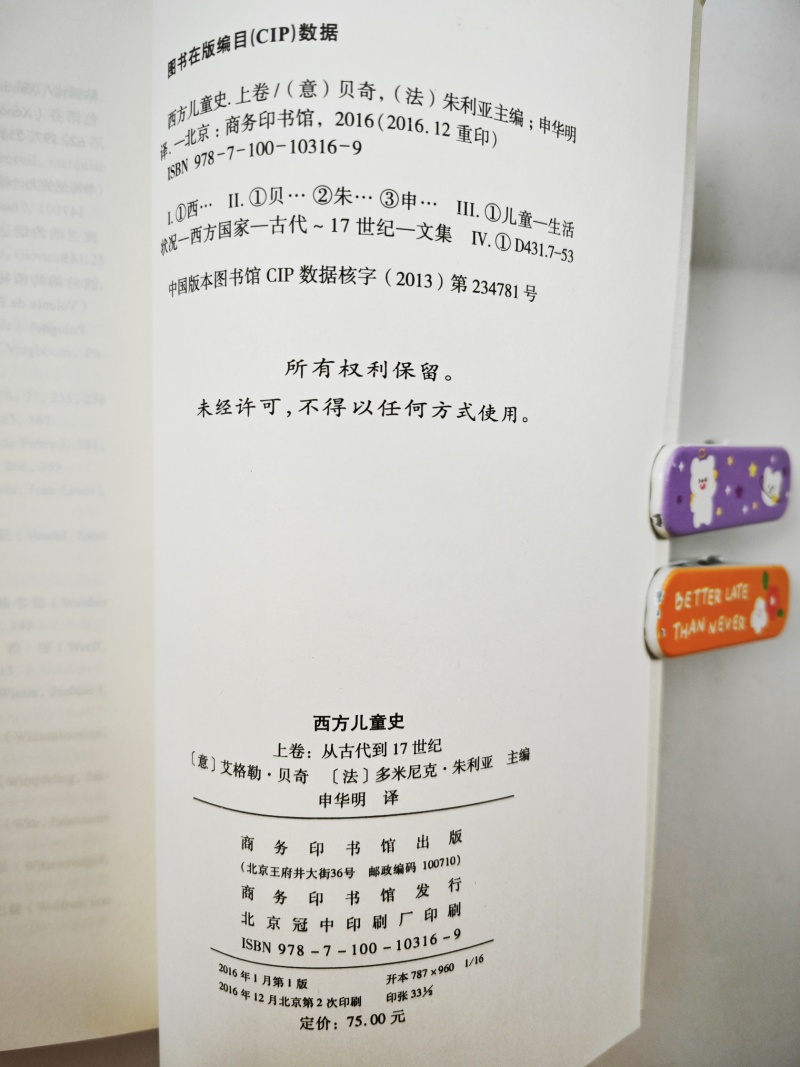 图书在版编目(CIP)数据
西方儿童史.上卷/(意)贝奇,(法)朱利亚主编;申华明
译.—北京:商务印书馆,2016(2016.12重印)
ISBN 978-7-100-10316-9
Ⅰ.①西… Ⅱ.①贝…②朱…③申… Ⅲ.①儿童—生活
状况—西方国家—古代~17世纪—文集 Ⅳ.①D431.7-53
中国版本图书馆CIP数据核字(2013)第234781号
所有权利保留。
未经许可,不得以任何方式使用。
BETTER LATE
THAN NEVER
西方儿童史
上卷:从古代到17世纪
〔意〕艾格勒·贝奇 〔法〕多米尼克·朱利亚 主编
申华明 译
商务印书馆出版
(北京王府井大街36号 邮政编码100710)
商务印书馆发行
北京冠中印刷厂印刷
ISBN 978-7-100-10316-9
2016年1月第1版 开本787×960 1/16
2016年12月北京第2次印刷 印张33½
定价:75.00元